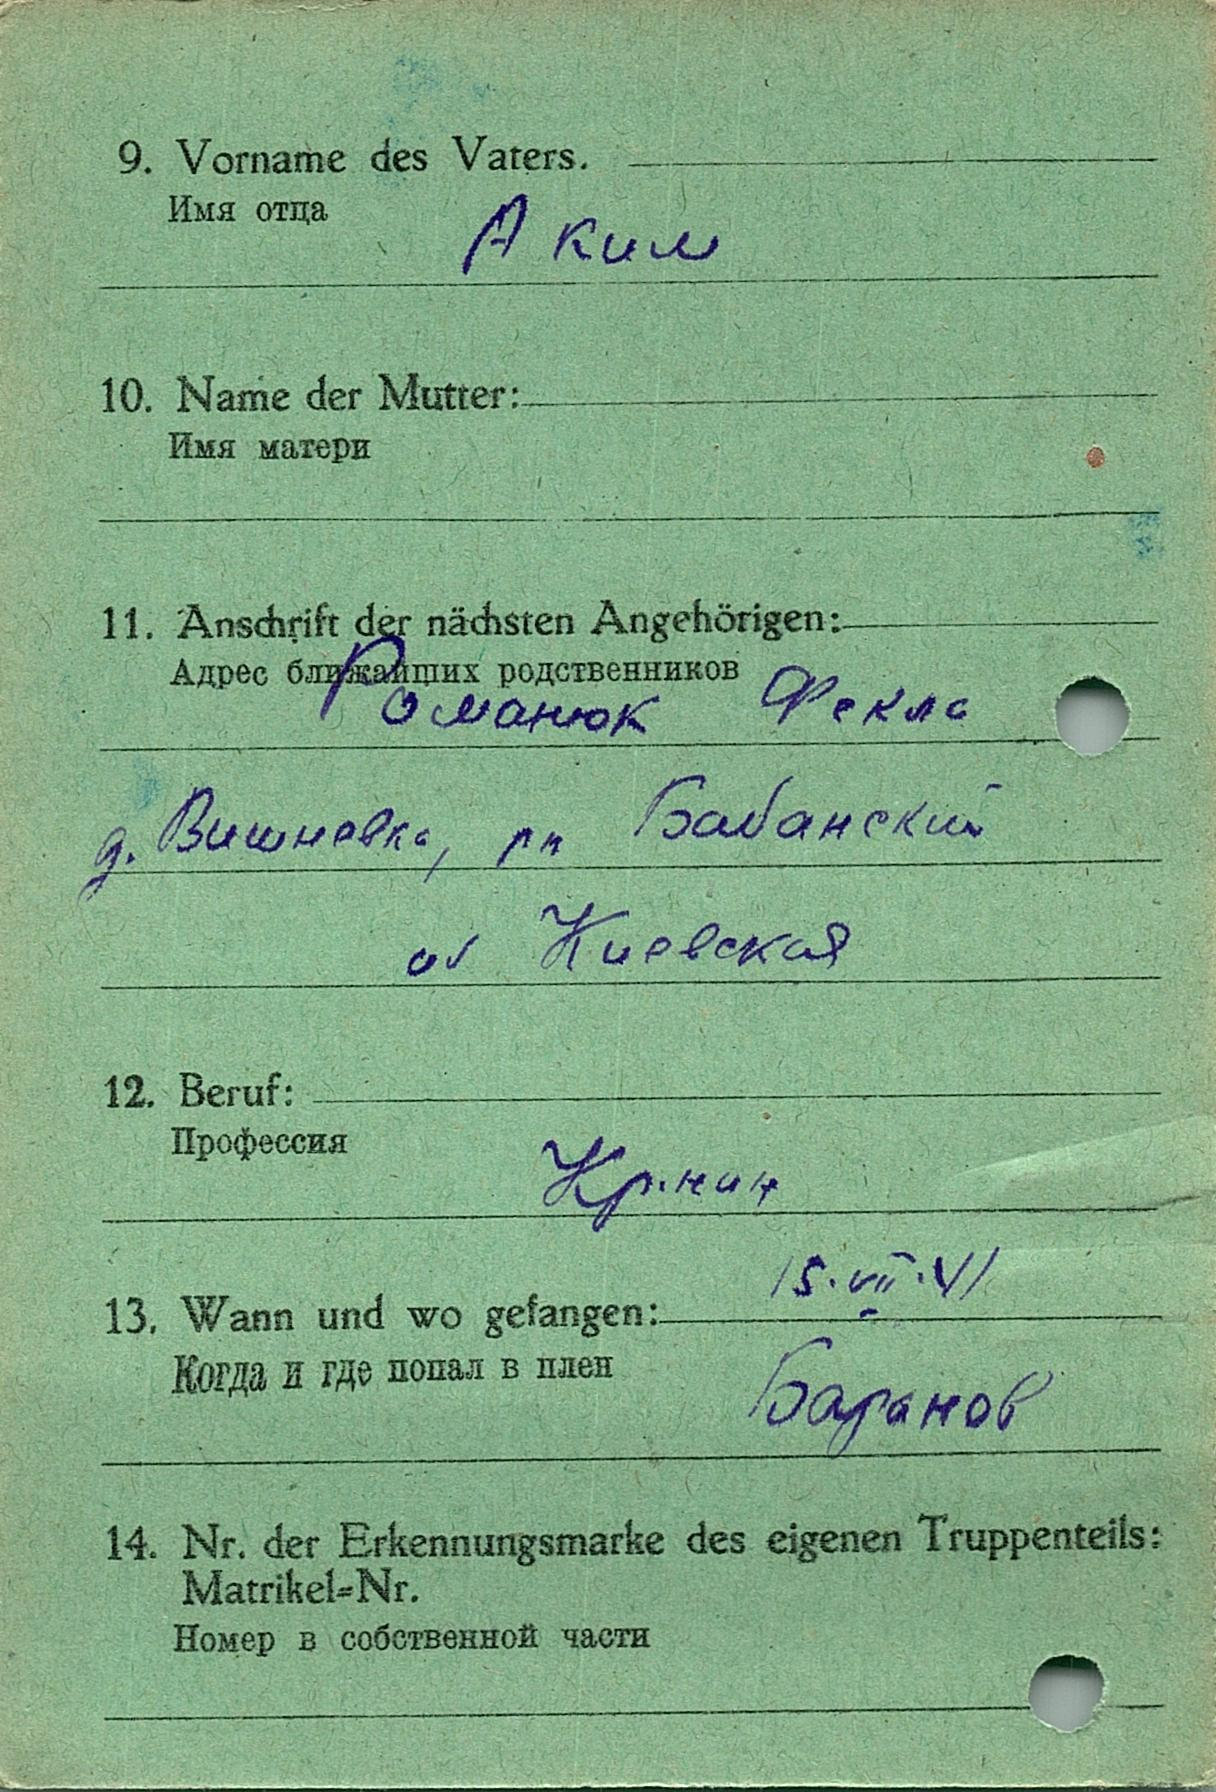 9. Vorname des Vaters.
Имя отца
Аким
10. Name der Mutter:
Имя матери
11. Anschrift der nächsten Angehörigen:
Адрес ближайших родственников
Романюк Фекла
д. Вишневка, рн Бабанский
об Киевская
12. Beruf:
Профессия
Кр.нин
13. Wann und wo gefangen:
15.VII.41
Когда и где попал в плен
14. Nr. der Erkennungsmarke des eigenen Truppenteils:
Matrikel=Nr.
Номер в собственной части